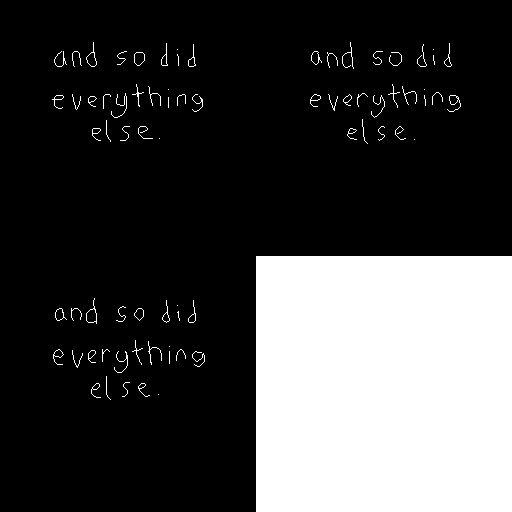 and so did
everything
else.
and so did
everything
else.
and so did
everything
else.